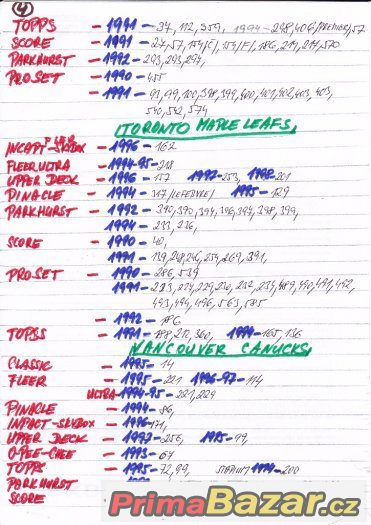 4
TOPPS - 1991 - 37, 112, 359, 1994 - 298, 406/PREMIER/57
SCORE - 1991 - 27, 57, 154/C/, 154/F/, 186, 214, 214, 570
PARKHURST - 1992 - 293, 293, 294,
PRO SET - 1990 - 455
- 1991 - 91, 99, 100, 398, 399, 400, 401, 402, 403, 403,
540, 542, 574
TORONTO MAPLE LEAFS,
SKYBOX - 1996 - 162
FLEER ULTRA - 1994-95 - 218
UPPER DECK - 1996 - 157 1997 - 253, 1998 - 201
PINACLE - 1994 - 317/LEFEBVRE/ 1995 - 129
PARKHURST - 1992 - 390, 390, 394, 396, 397, 398, 399,
- 1994 - 233, 236,
SCORE - 1990 - 40,
- 1991 - 139, 248, 246, 254, 269, 391,
PRO SET - 1990 - 286, 539
1991 - 223, 227, 229, 230, 232, 233, 489, 490, 491, 492,
493, 494, 496, 563, 585
- 1992 - 186
TOPSS - 1991 - 188, 212, 360, 1994 - 165, 136
VANCOUVER CANUCKS,
CLASSIC - 1995 - 14
FLEER - 1995 - 221 1996-97 - 114
ULTRA - 1994-95 - 221, 229
PINACLE - 1994 - 86,
INPACT - SKYBOX - 1996 - 171,
UPPER DECK - 1997 - 256, 1995 - 99,
O-PEE-CHEE - 1993 - 67
TOPPS - 1995 - 72, 99, 1994 - 200
PARKHURST
SCORE
PrimaBazar.cz